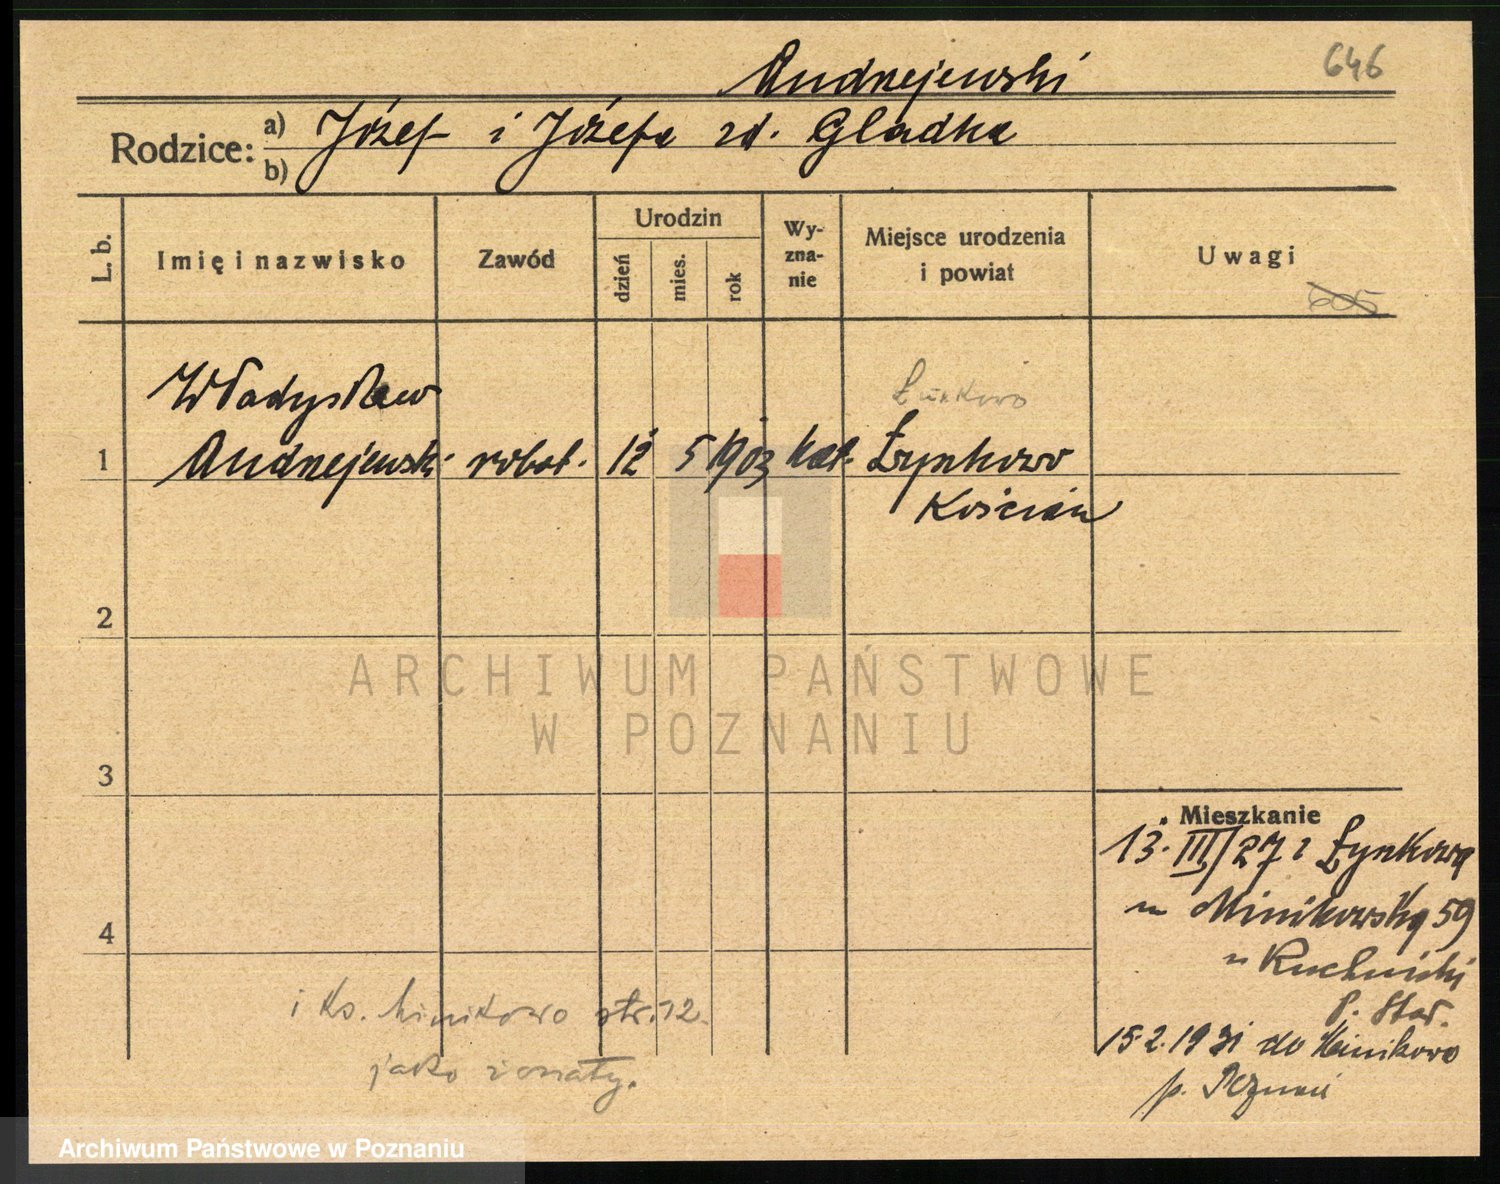 646
Andrzejewski
Rodzice: a) Józef i Józefa zd. Gładka
b)
L. b.
Imię i nazwisko
Zawód
Urodzin
dzień
mies.
rok
Wy-
zna-
nie
Miejsce urodzenia
i powiat
Uwagi
605
Władysław
Łunkowo
1 Andrzejewski robot. 12 5 1903 kat. Łynkowo
Kościan
2
3
4
Mieszkanie
13. III/27 z Łynkowa
Minikowska 59
u Ruchniski
P. Star.
15.2.1931 do Minikowo
p. Poznań
i Ks. Minikowo str. 12.
jako żonaty.
ARCHIWUM PAŃSTWOWE
W POZNANIU
Archiwum Państwowe w Poznaniu